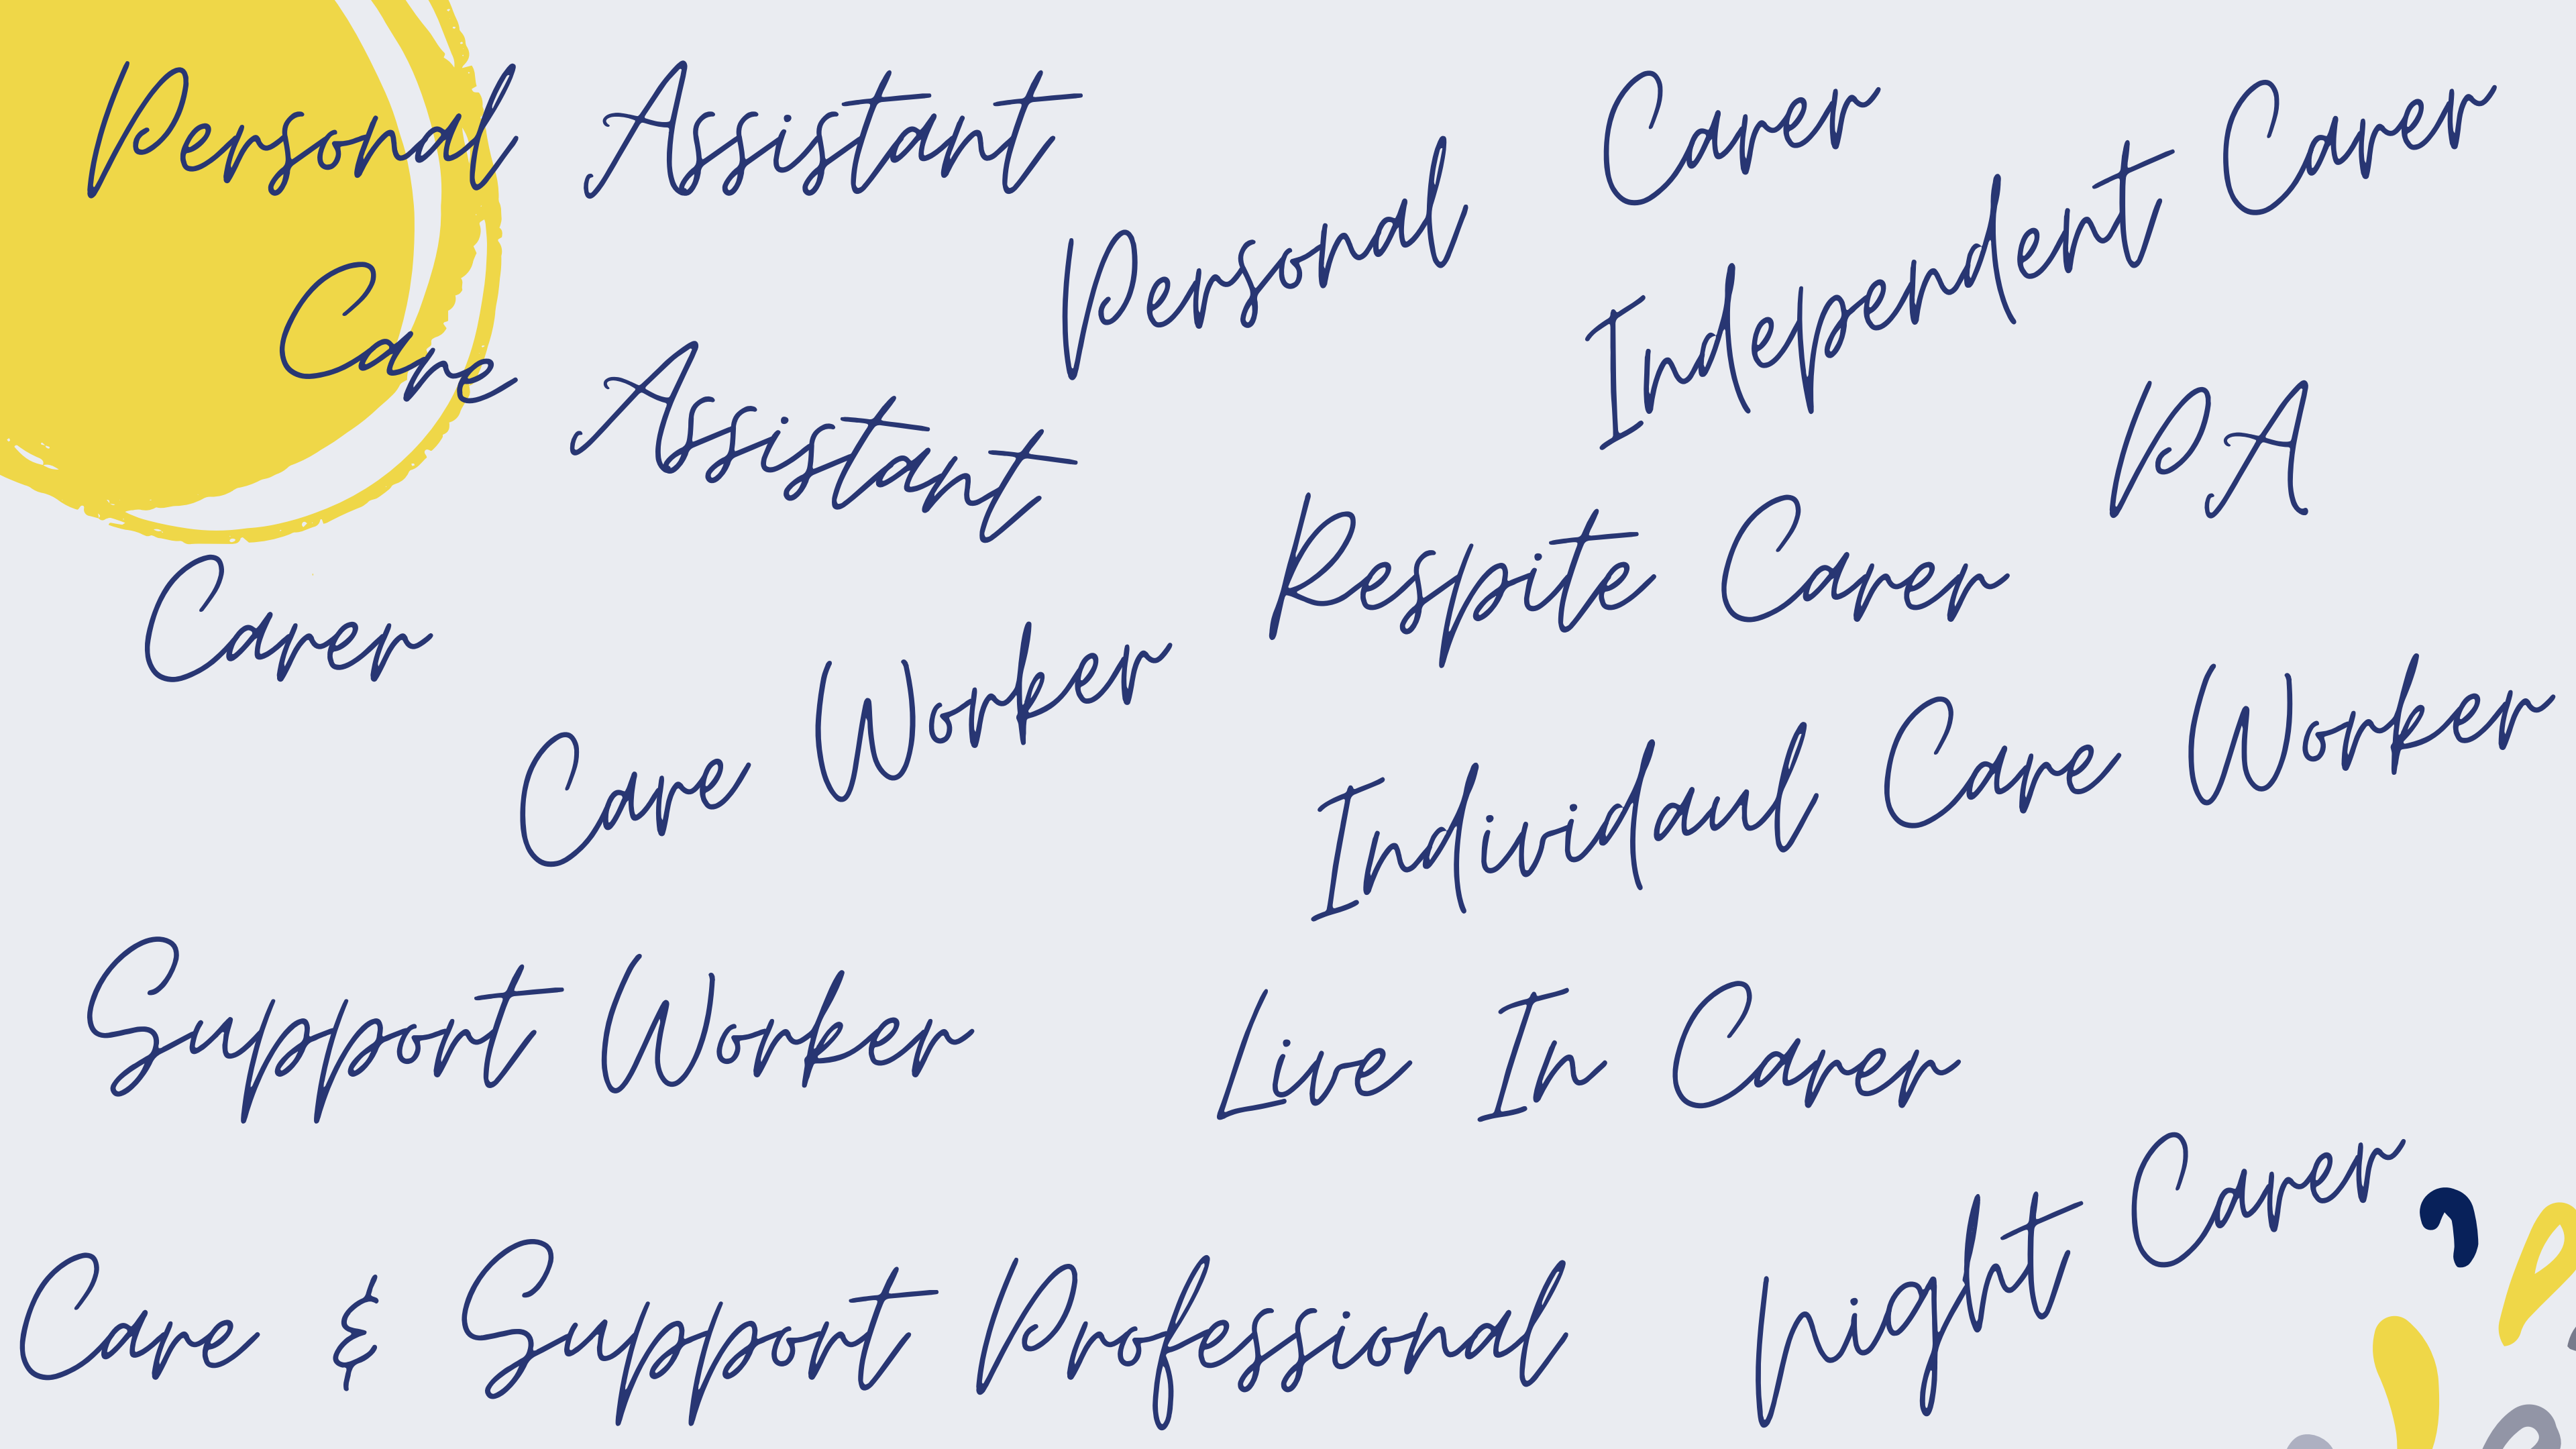 Personal Assistant
Personal Carer
Independent Carer
Care Assistant
PA
Respite Carer
Carer
Care Worker
Individaul Care Worker
Support Worker
Live In Carer
Night Carer
Care & Support Professional